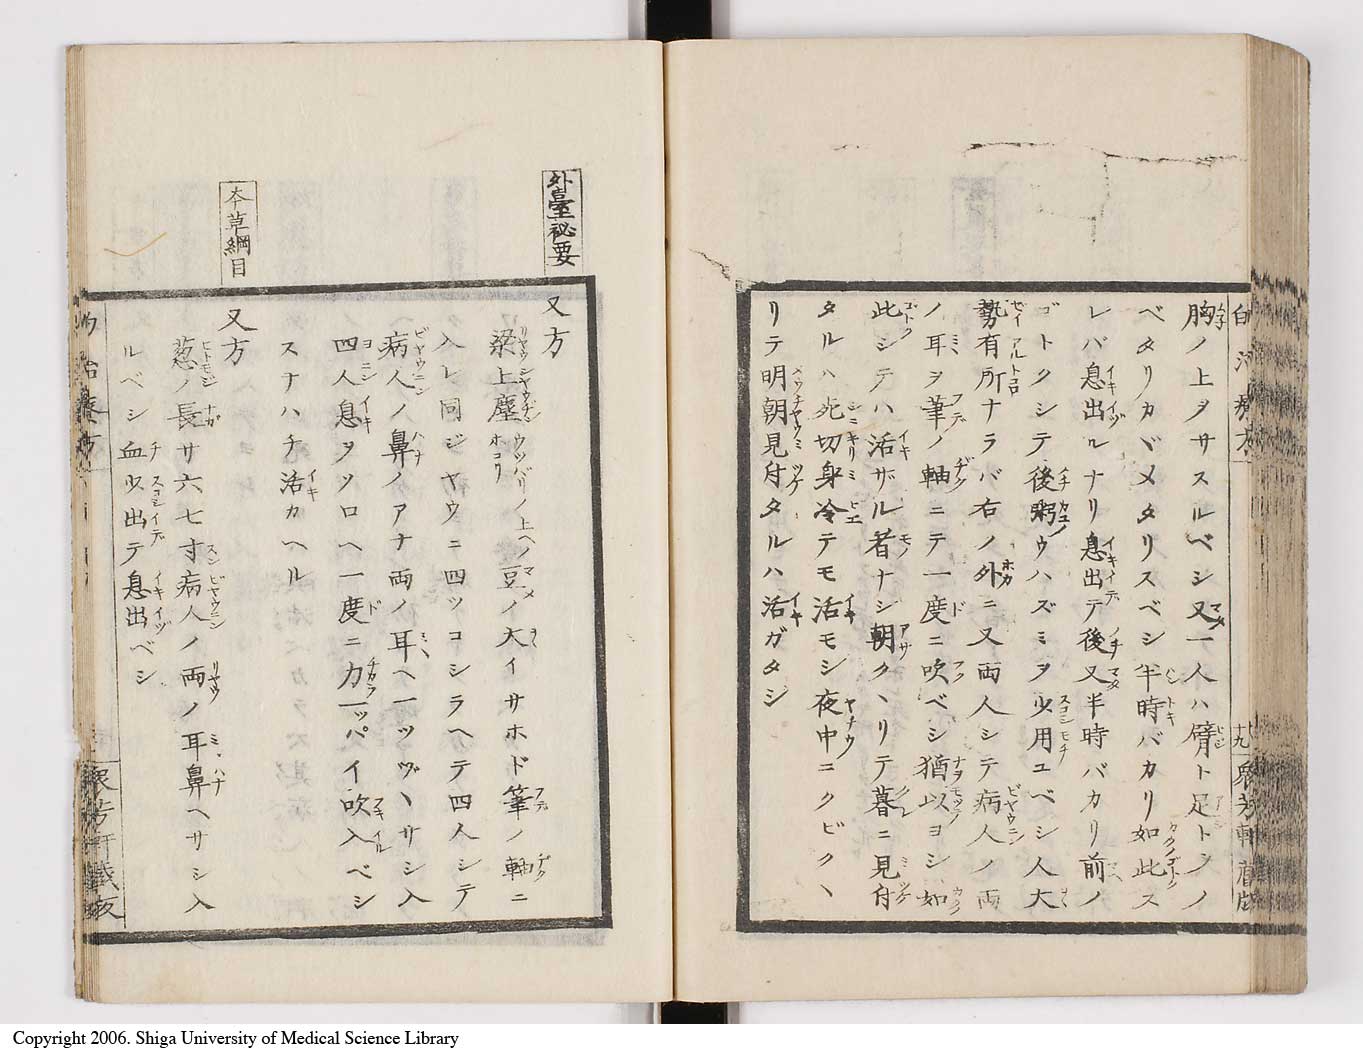 胸ノ上ヲサスルベシ又一人ハ臂ト足トヲノ
ベタリカヾメタリスベシ半時バカリ如此ス
レバ息出ルナリ息出テ後又半時バカリ前ノ
ゴトクシテ後粥ウハズミヲ少用ユベシ人大
勢有所ナラバ右ノ外ニ又両人シテ病人ノ両
ノ耳ヲ筆ノ軸ニテ一度ニ吹ベシ猶以ヨシ如
此シテハ活ザル者ナシ朝クヽリテ暮ニ見付
タルハ死切身冷テモ活モシ夜中ニクビクヽ
リテ明朝見付タルハ活ガタシ
外臺秘要
又方
梁上塵ウツバリノ上ヘノホコリ豆ノ大イサホド筆ノ軸ニ
入レ同ジヤウニ四ツコシラヘテ四人シテ
病人ノ鼻ノアナ両ノ耳ヘ一ツヅヽサシ入
四人息ヲソロヘ一度ニ力一ッパイ吹入ベシ
スナハチ活カヘル
本草綱目
又方
葱ノ長サ六七寸病人ノ両ノ耳鼻ヘサシ入
ルベシ血少出テ息出ベシ
Copyright 2006. Shiga University of Medical Science Library